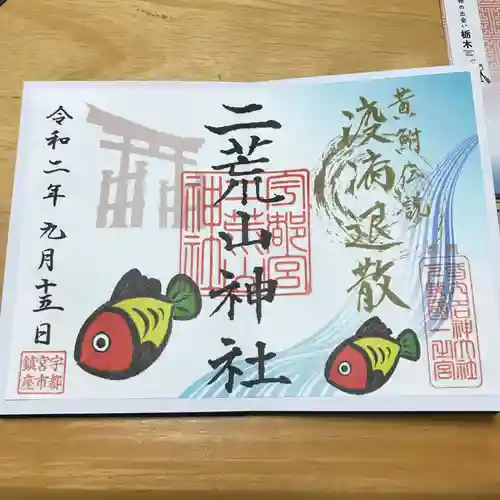 の出会い 栃木
黄鮒伝説
疫病退散
二荒山神社
宇都宮
二荒山
神社
令和二年九月十五日
宇都
宮市
鎮座